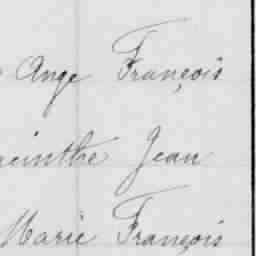 Ange François
acinthe Jean
Marie François